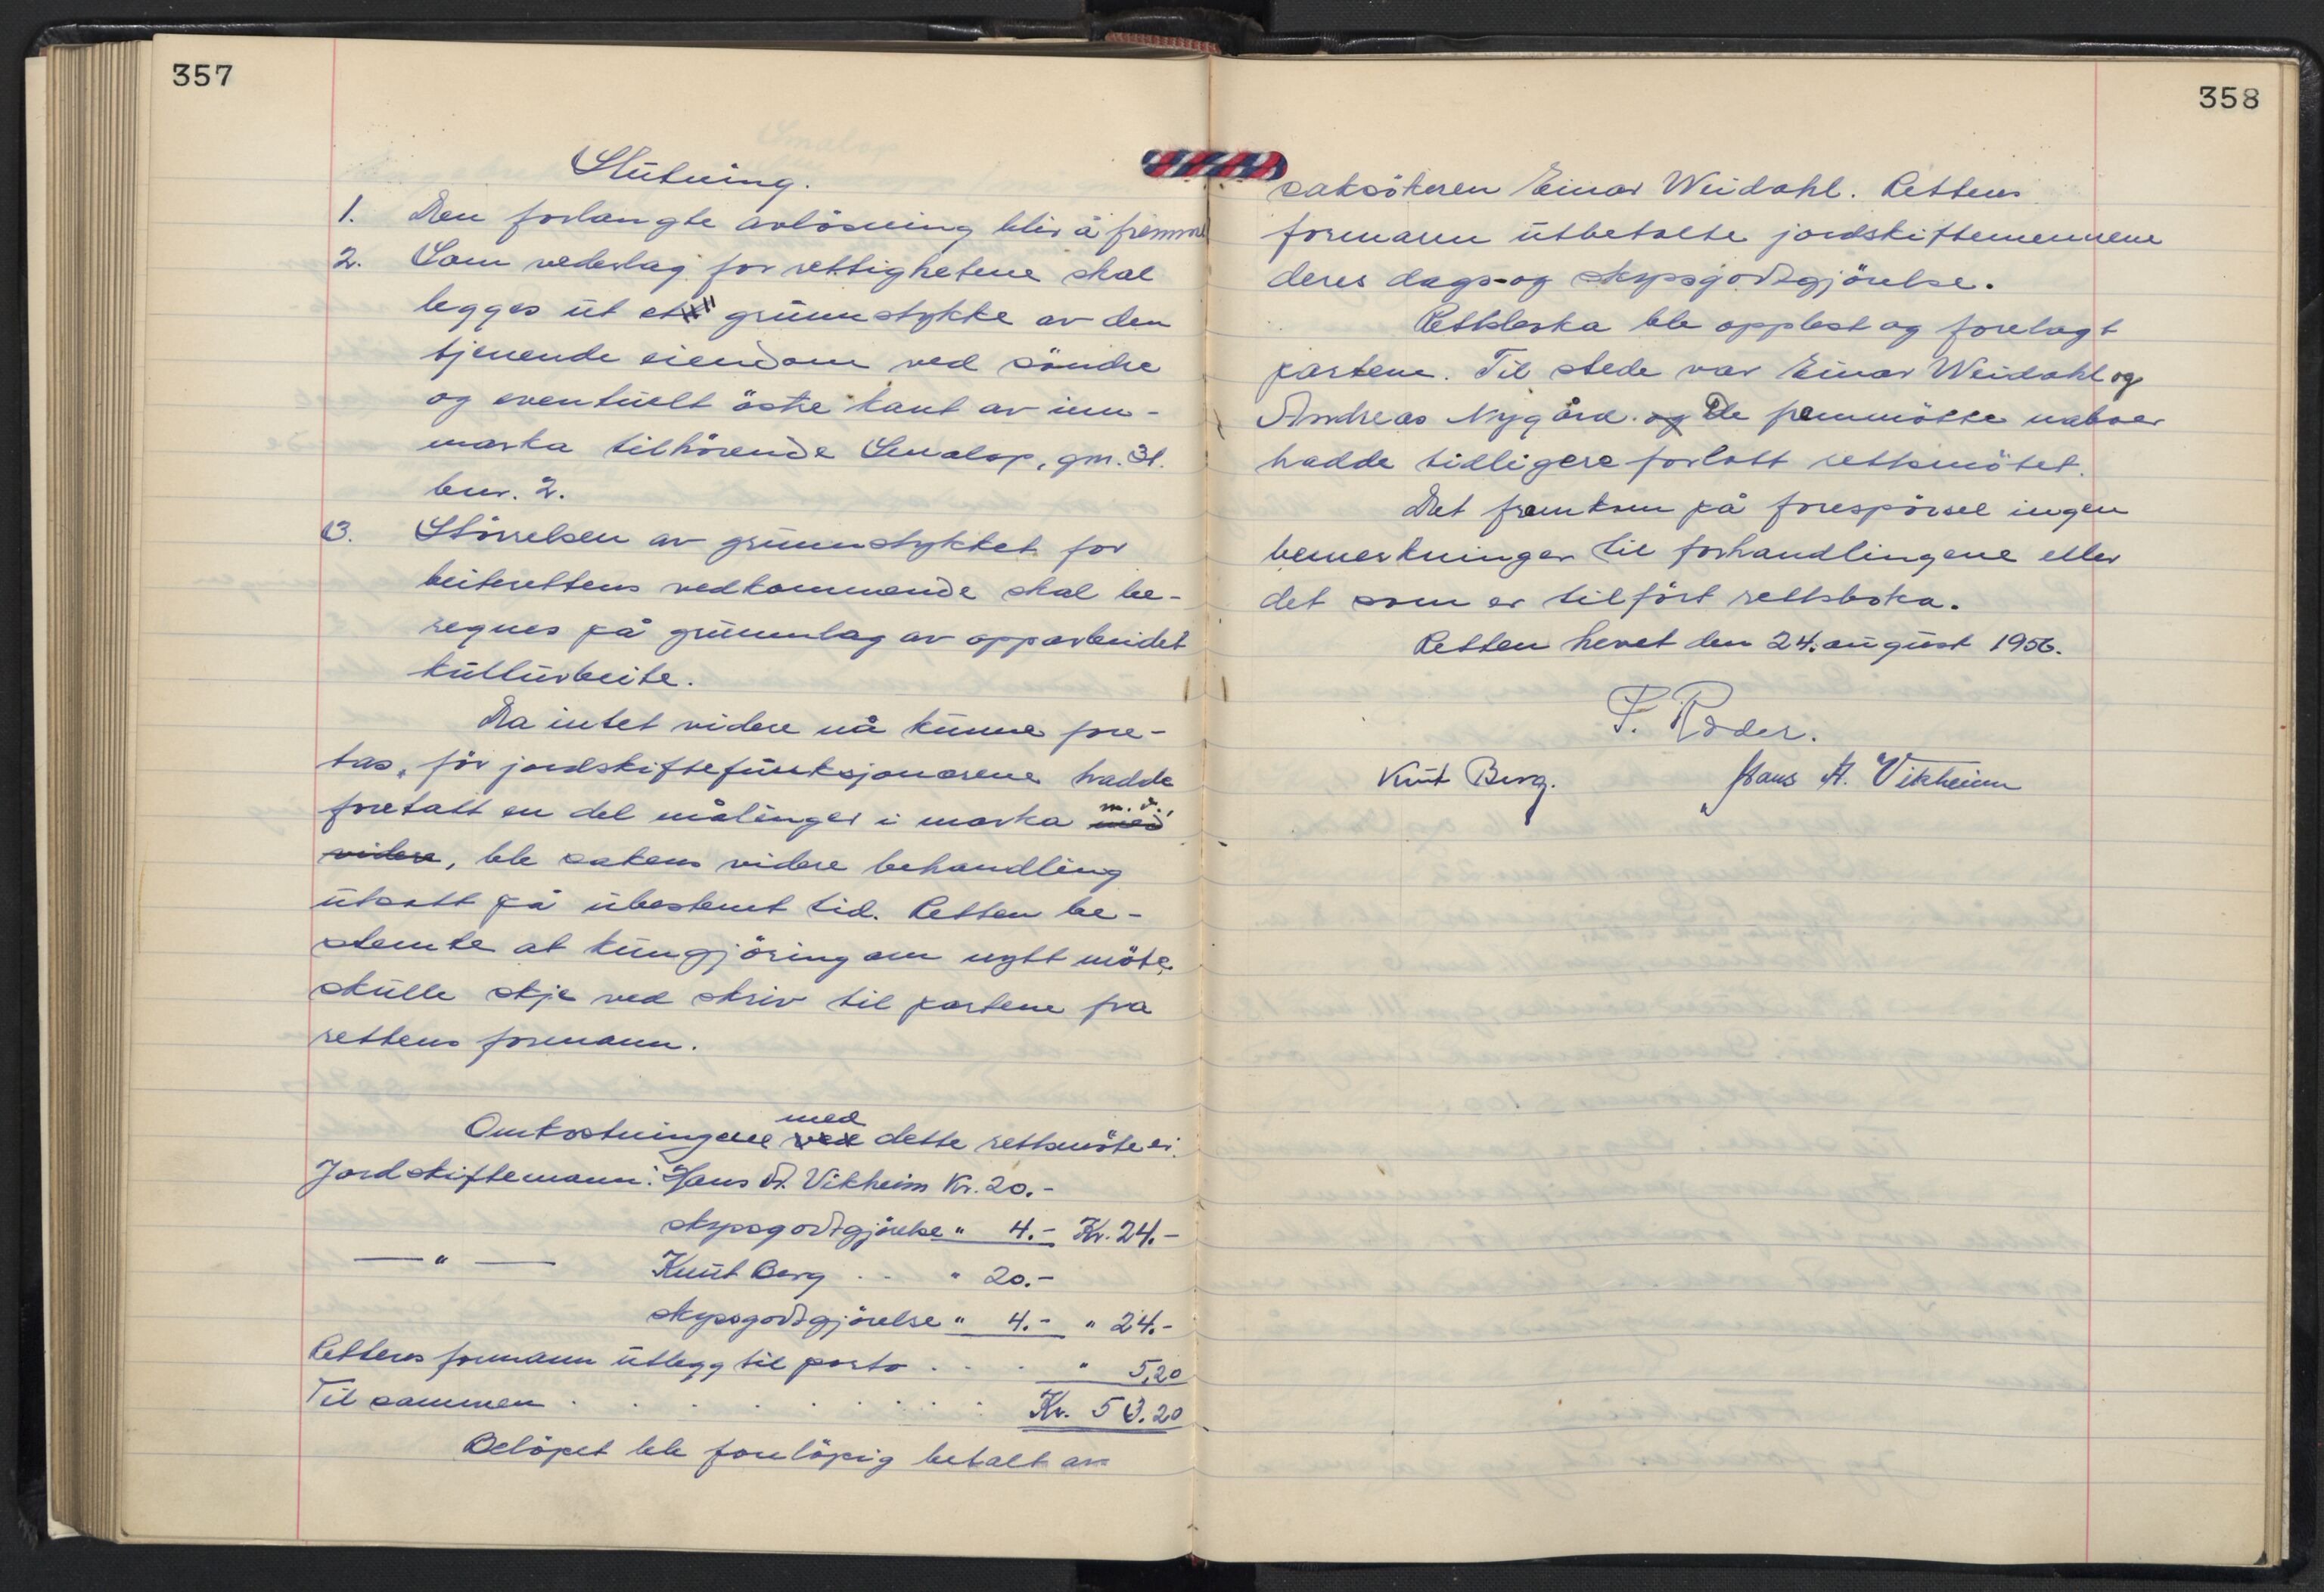 357
Slutning.
1. Den forlangte avlösning blir å fremme
2. Som vederlag for rettighetene skal
legges ut et grunnstykke av den
tjenende eiendom ved söndre
og eventuelt östre kant av inn-
marka tilhörende Smalap, gnr. 31.
bnr. 2.
3. Störrelsen av grunnstykket for
beiterettens vedkommende skal be-
regnes på grunnlag av opparbeidet
kulturbeite.
Da intet videre nå kunne fore-
tas, för jordskiftefunksjonærene hadde
foretatt en del målinger i marka med m.v.,
videre, ble sakens videre behandling
utsatt på ubestemt tid. Retten be-
stemte at kungjöring om nytt möte
skulle skje ved skriv til partene fra
rettens formann.
Omkostningene ved med dette rettsmöte er:
Jordskiftemann: Hans A. Vikheim Kr. 20.-
skyssgodtgjörelse " 4.- Kr. 24.-
— " — Knut Berg . . " 20.-
skyssgodtgjörelse " 4.- " 24.-
Rettens formann utlegg til porto . . . " 5,20
Til sammen . . . . . . . . Kr. 53.20
Belöpet ble foreløpig betalt av
358
saksökeren Einar Weidahl. Rettens
formann utbetalte jordskiftemennene
deres dags-og skyssgodtgjörelse.
Rettsboka ble opplest og forelagt
partene. Til stede var Einar Weidahl og
Andreas Nygård. og De fremmötte naboer
hadde tidligere forlatt rettsmötet.
Det framkom på forespörsel ingen
bemerkninger til forhandlingene eller
det som er tilfört rettsboka.
Retten hevet den 24. august 1956.
F. Röder.
Knut Berg. Hans A. Vikheim